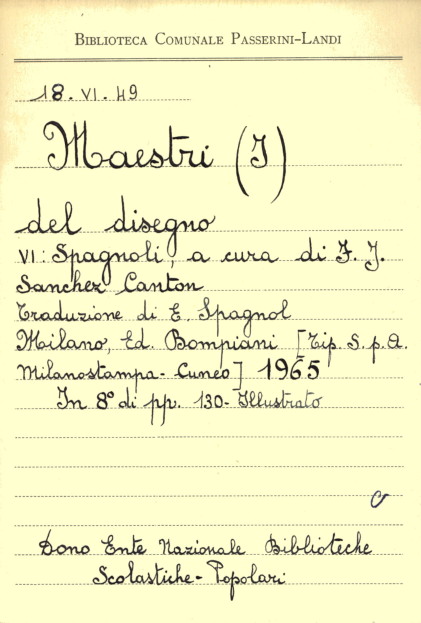 BIBLIOTECA COMUNALE PASSERINI-LANDI
18. VI. 49
Maestri (I)
del disegno
VI: Spagnoli, a cura di F. J.
Sanchez Canton
Traduzione di E. Spagnol
Milano, Ed. Bompiani [Tip. S. p. A.
Milanostampa - Cuneo] 1965
In 8° di pp. 130 - Illustrato
Dono Ente Nazionale Biblioteche
Scolastiche - Popolari